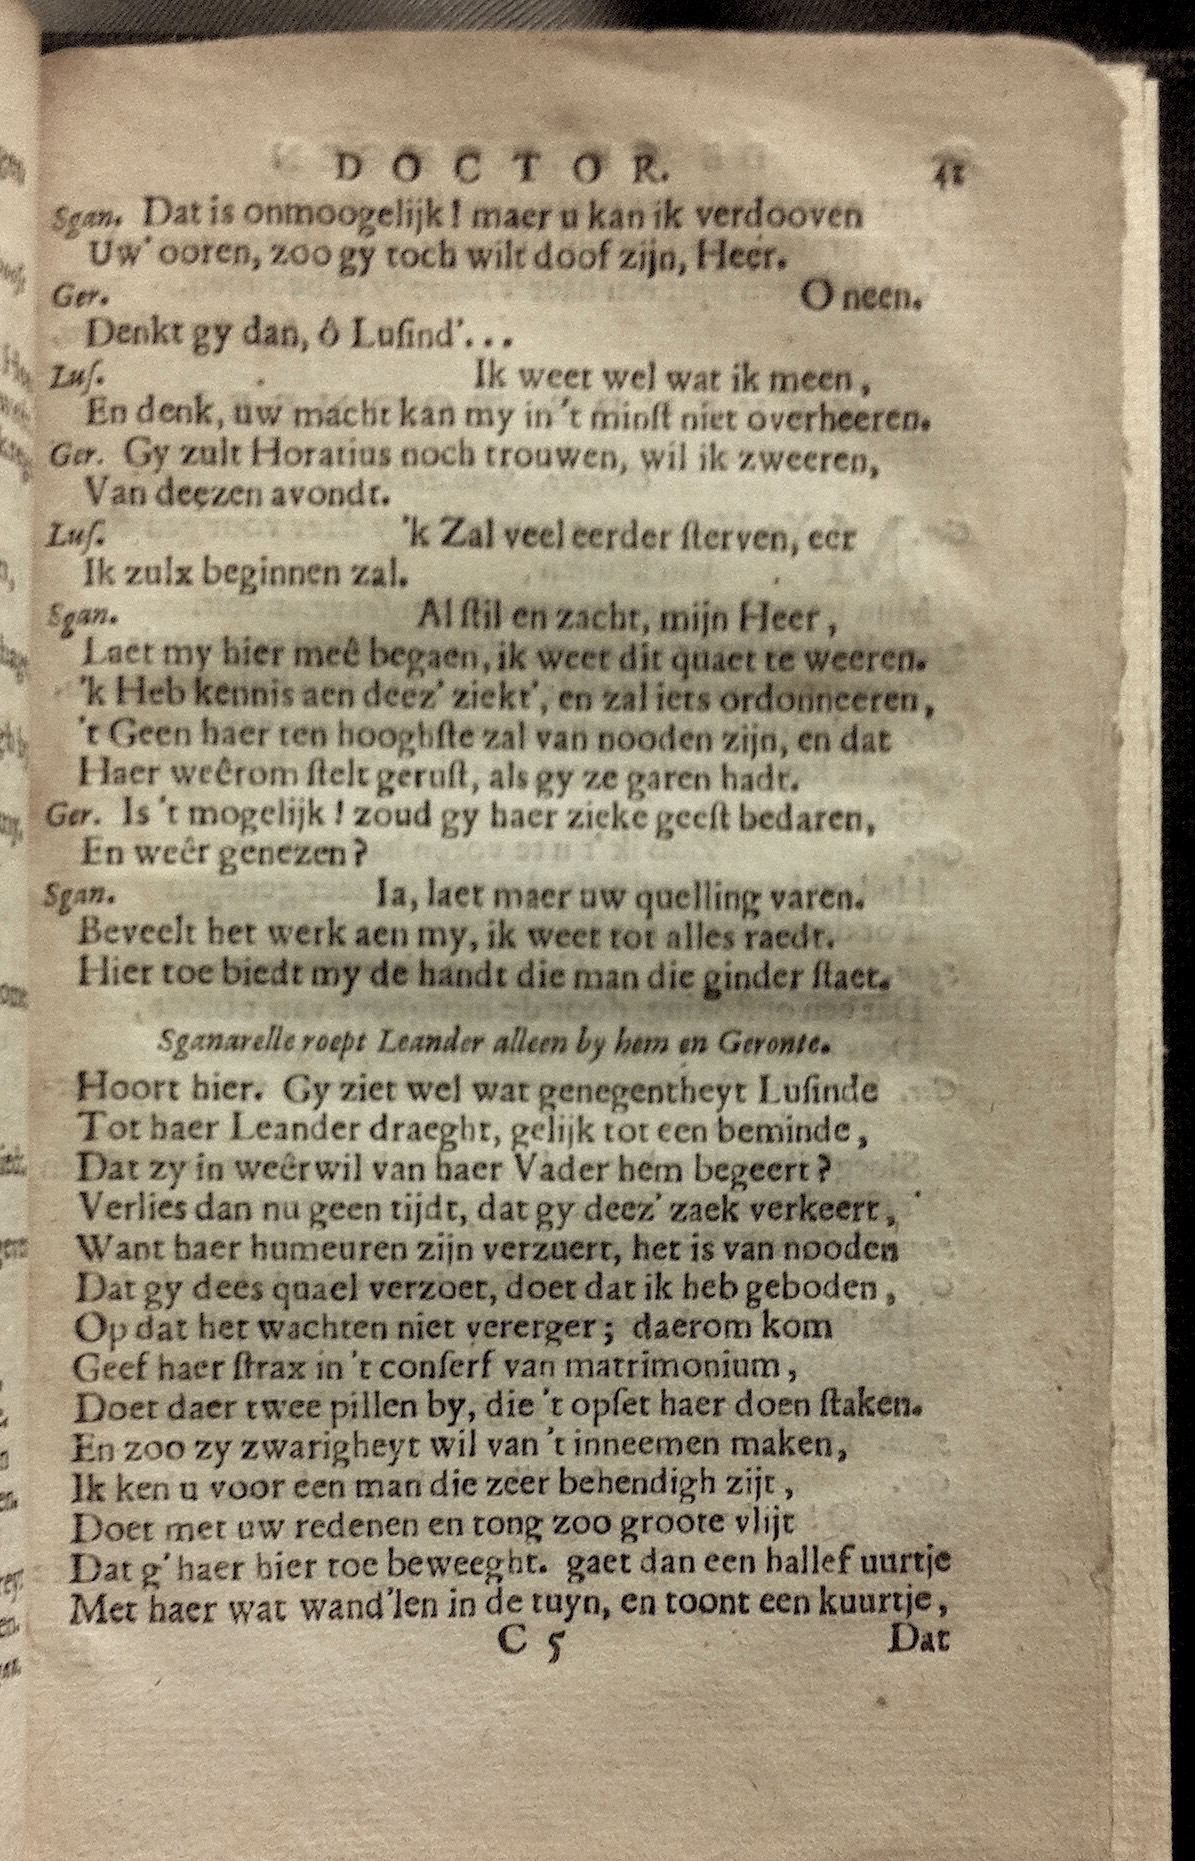 DOCTOR. 41
Sgan. Dat is onmoogelijk! maer u kan ik verdooven
Uw' ooren, zoo gy toch wilt doof zijn, Heer.
Ger. O neen.
Denkt gy dan, ô Luſind'...
Luſ. Ik weet wel wat ik meen,
En denk, uw macht kan my in 't minſt niet overheeren.
Ger. Gy zult Horatius noch trouwen, wil ik zweeren,
Van deezen avondt.
Luſ. 'k Zal veel eerder ſterven, eer
Ik zulx beginnen zal.
Sgan. Al ſtil en zacht, mijn Heer,
Laet my hier meê begaen, ik weet dit quaet te weeren.
'k Heb kennis aen deez' ziekt', en zal iets ordonneeren,
't Geen haer ten hooghſte zal van nooden zijn, en dat
Haer weêrom ſtelt geruſt, als gy ze garen hadt.
Ger. Is 't mogelijk! zoud gy haer zieke geeſt bedaren,
En weêr genezen?
Sgan. Ia, laet maer uw quelling varen.
Beveelt het werk aen my, ik weet tot alles raedt.
Hier toe biedt my de handt die man die ginder ſtaet.
Sganarelle roept Leander alleen by hem en Geronte.
Hoort hier. Gy ziet wel wat genegentheyt Luſinde
Tot haer Leander draeght, gelijk tot een beminde,
Dat zy in weêrwil van haer Vader hem begeert?
Verlies dan nu geen tijdt, dat gy deez' zaek verkeert,
Want haer humeuren zijn verzuert, het is van nooden
Dat gy dees quael verzoet, doet dat ik heb geboden,
Op dat het wachten niet vererger; daerom kom
Geef haer ſtrax in 't conſerf van matrimonium,
Doet daer twee pillen by, die 't opſet haer doen ſtaken.
En zoo zy zwarigheyt wil van 't inneemen maken,
Ik ken u voor een man die zeer behendigh zijt,
Doet met uw redenen en tong zoo groote vlijt
Dat g' haer hier toe beweeght. gaet dan een hallef uurtje
Met haer wat wand'len in de tuyn, en toont een kuurtje,
C 5 Dat